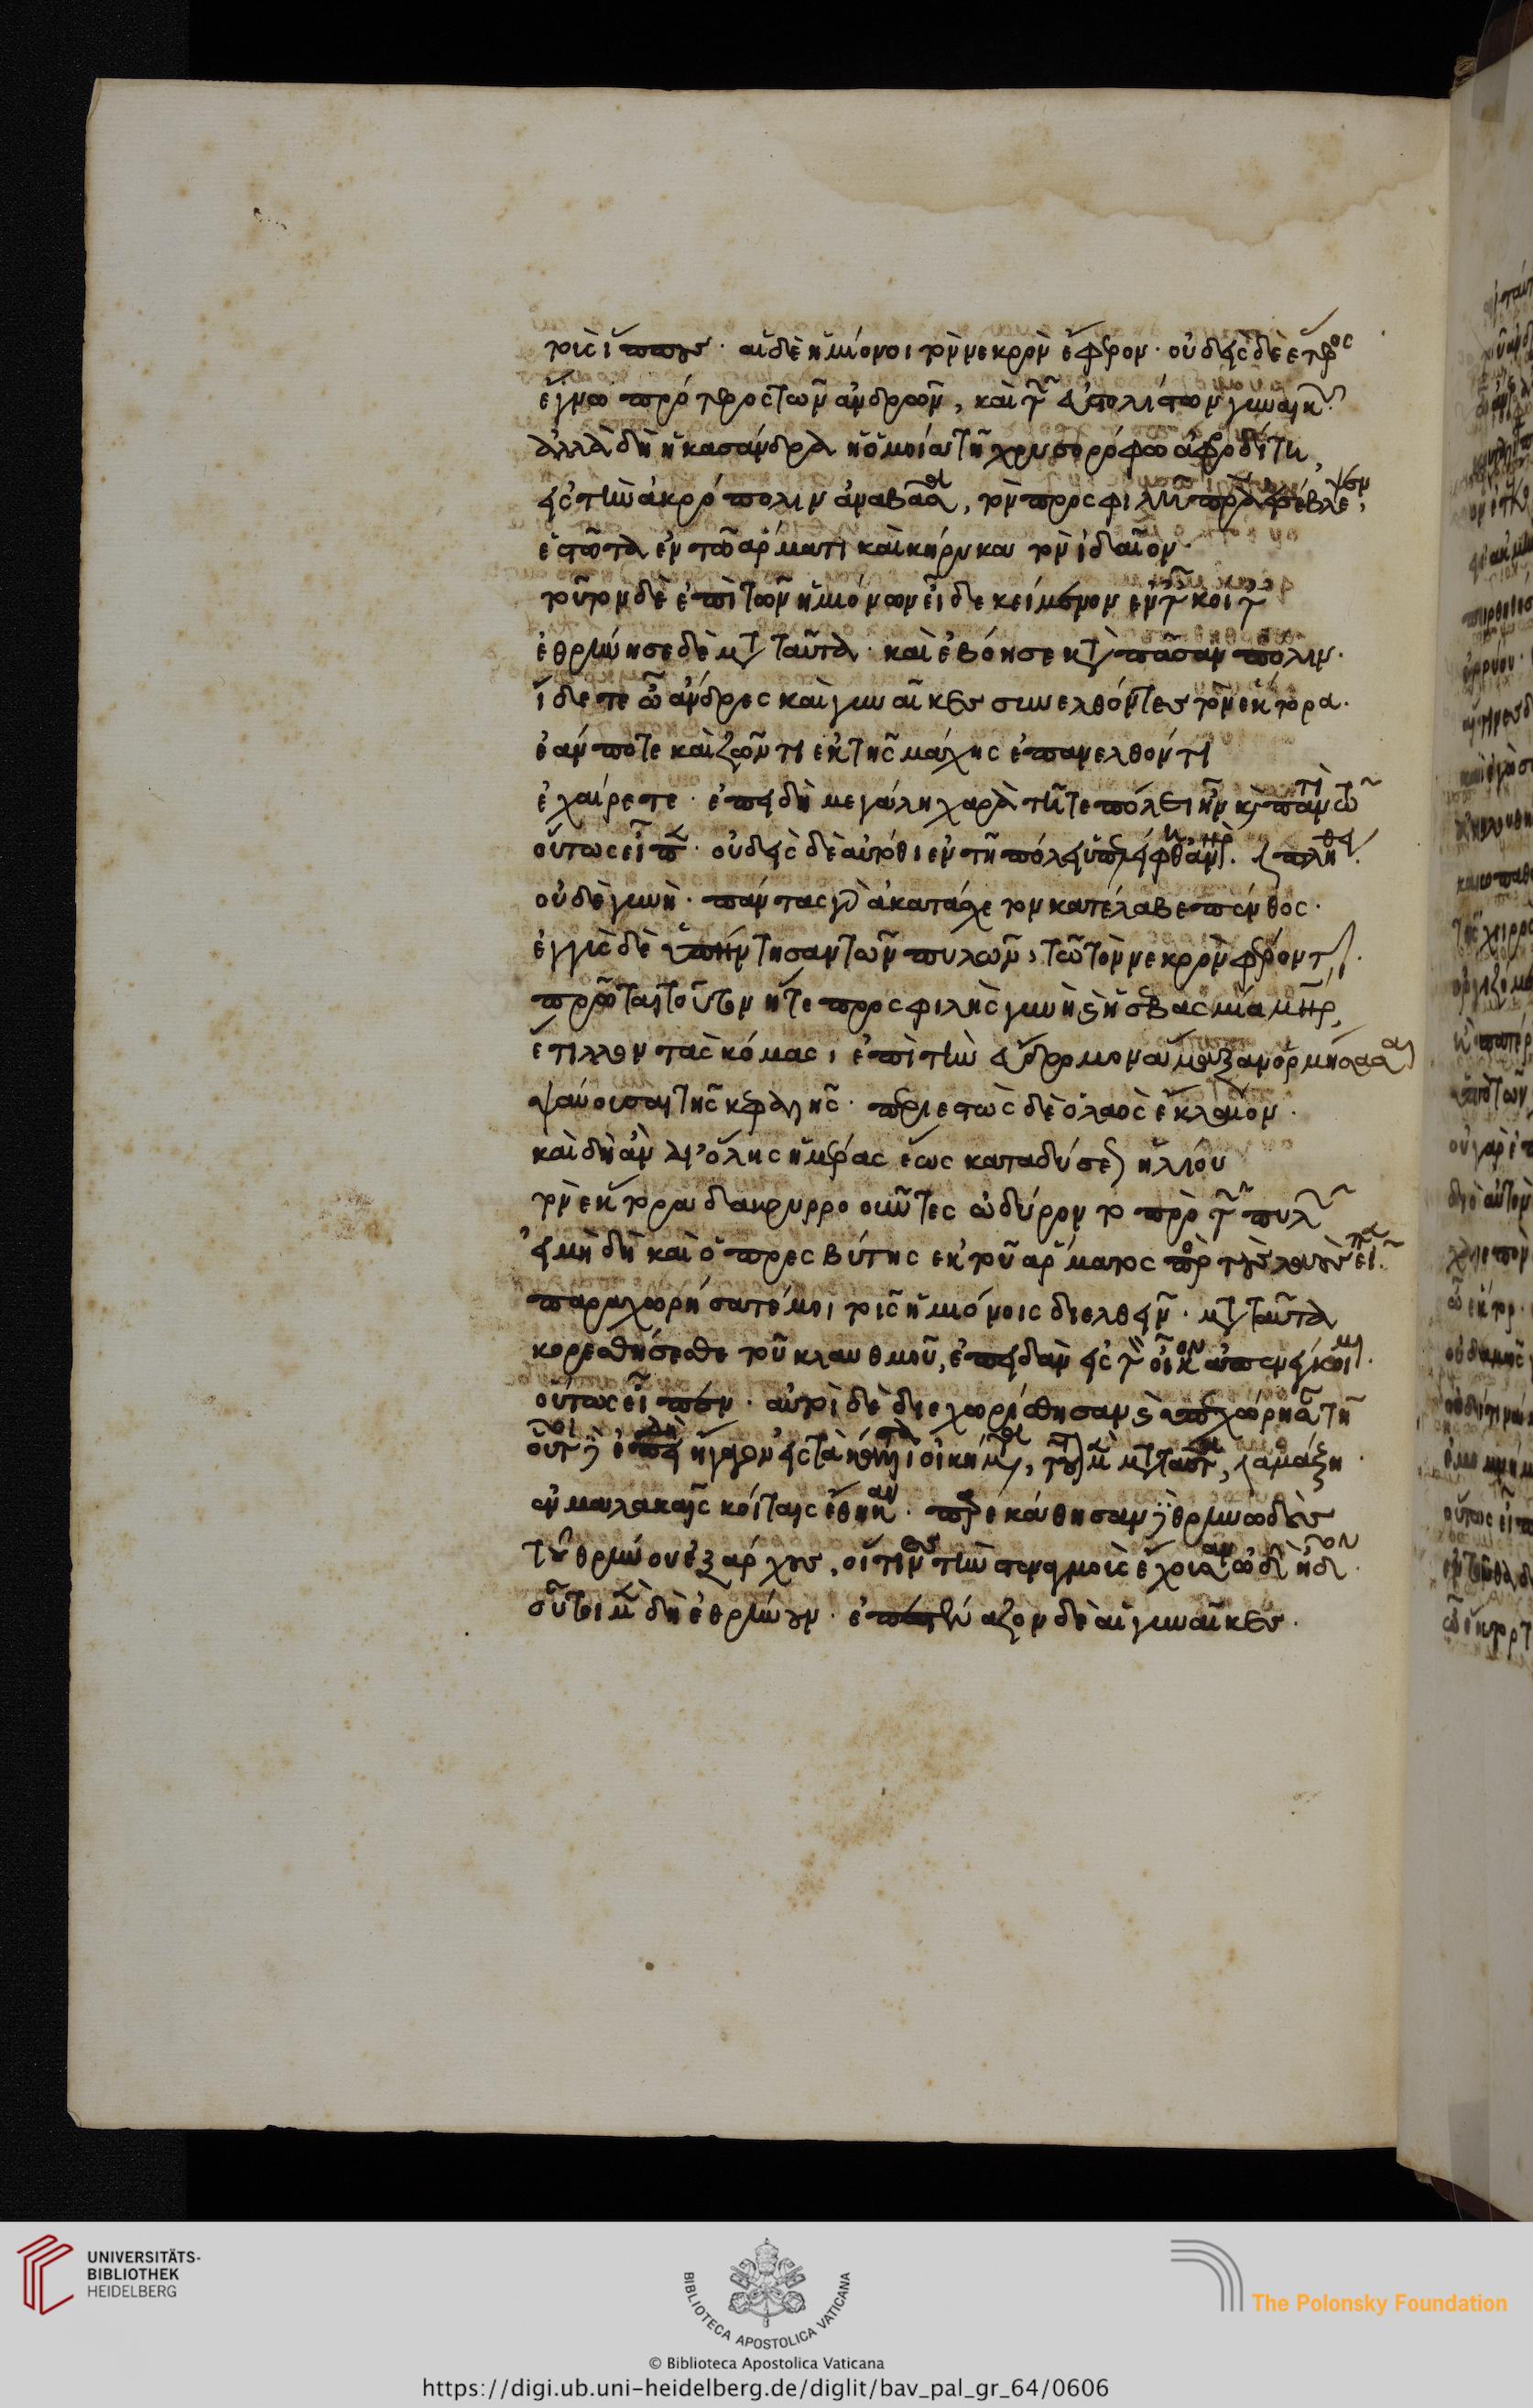 τοὺς ἵππους· αἱ δὲ ἡμίονοι τὸν νεκρὸν ἔφερον· οὐδεὶς δὲ ἕτερος
ἔγνω πρότερος τῶν ἀνδρῶν, καὶ τῶν γυναικῶν
ἀλλὰ δὴ ἡ κασάνδρα ἡ ὁμοία τῇ χρυσορόφω ἀφροδίτη
εἰς τὴν ἀκρόπολιν ἀναβᾶσα, τὸν προσφιλῆ πατέρα
ἑστῶτα ἐν τῶ ἅρματι καὶ κήρυκα τὸν ἰδαῖον·
τοῦτον δὲ ἐπὶ τῶν ἡμιόνων εἶδε κείμενον ἐν τῆ κοίτη
ἐθρήνησε δὲ μετὰ ταῦτα· καὶ ἐβόησε κατὰ πᾶσαν πόλιν·
ἴδετε ὦ ἄνδρες καὶ γυναῖκες συνελθόντες τὸν ἕκτορα.
ἐάν ποτε καὶ ζῶντι ἐκ τῆς μάχης ἐπανελθόντι
ἐχαίρετε· ἐπειδὴ μεγάλη χαρὰ τῆ τε πόλει ἦν καὶ παντὶ τῶ
οὕτως εἶπε· οὐδεὶς δὲ αὐτόθι ἐν τῆ πόλει ὑπελείφθη ἀνὴρ· πλήθει·
οὐδὲ γυνὴ· πάντας γὰρ ἀκατάσχετον κατέλαβε πένθος·
ἐγγὺς δὲ ὑπήντησαν τῶν πυλῶν, τῶ τὸν νεκρὸν φέροντι·
πρῶται τοῦτον ἥτε προσφιλὴς γυνὴ καὶ ἡ σεβασμία μήτηρ,
ἔτιλλον τὰς κόμας, ἐπὶ τὴν εὔδρομον ἅμαξαν ὁρμήσασαι
ψαύουσαι τῆς κεφαλῆς· περιεστὼς δὲ ὁ λαὸς ἔκλαιον·
καὶ δὴ ἂν δι' ὅλης ἡμέρας ἕως καταδύσεως ἡλίου
τὸν ἕκτορα δακρυρροοῦντες ὠδύροντο πρὸ τῶν πυλῶν
εἰ μὴ δὴ καὶ ὁ πρεσβύτης ἐκ τοῦ ἅρματος πρὸς τοὺς λαοὺς εἶπε·
παραχωρήσατέ μοι τοῖς ἡμιόνοις διελθεῖν· μετὰ ταῦτα
κορεσθήσεσθε τοῦ κλαυθμοῦ, ἐπειδὰν εἰς τὸν οἶκον ἀπενέγκοιμι.
οὕτως εἶπεν· αὐτοὶ δὲ διεχωρίσθησαν καὶ ὑπεχώρησαν τῆ
οὗτοι δὲ ἐπειδὴ ἤγαγον εἰς τὰ οἰκήματα, τοῦτον μὲν μετὰ ταῦτα, ἁμάξη·
ἐν μαλακαῖς κοίταις ἔθηκαν· παρεκάθησαν δὲ θρηνωδοὺς
τοῦ θρήνου ἐξάρχους, οἵτινες τὴν στεναγμοῖς ἔχουσαν ὠδὴν ἦδον·
οὗτοι μὲν δὴ ἐθρήνουν· ἐπεστέναζον δὲ αἱ γυναῖκες.
UNIVERSITÄTS-
BIBLIOTHEK
HEIDELBERG
BIBLIOTECA APOSTOLICA VATICANA
The Polonsky Foundation
© Biblioteca Apostolica Vaticana
https://digi.ub.uni-heidelberg.de/diglit/bav_pal_gr_64/0606